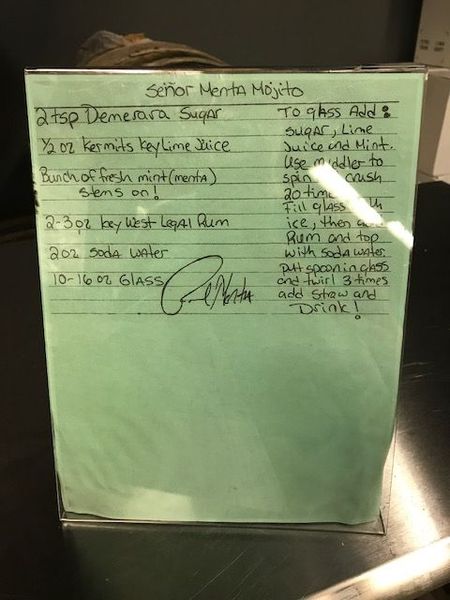 Señor Menta Mojito
2 tsp Demerara Sugar
1/2 oz Kermits Key Lime Juice
Bunch of fresh mint (menta)
stems on!
2-3 oz Key West Legal Rum
2 oz Soda Water
10-16 oz Glass
To glass Add:
sugar, Lime
Juice and Mint.
Use muddler to
crush
20
Fill glass
ice, then
Rum and top
with soda water
put spoon in glass
and twirl 3 times
add straw and
Drink!